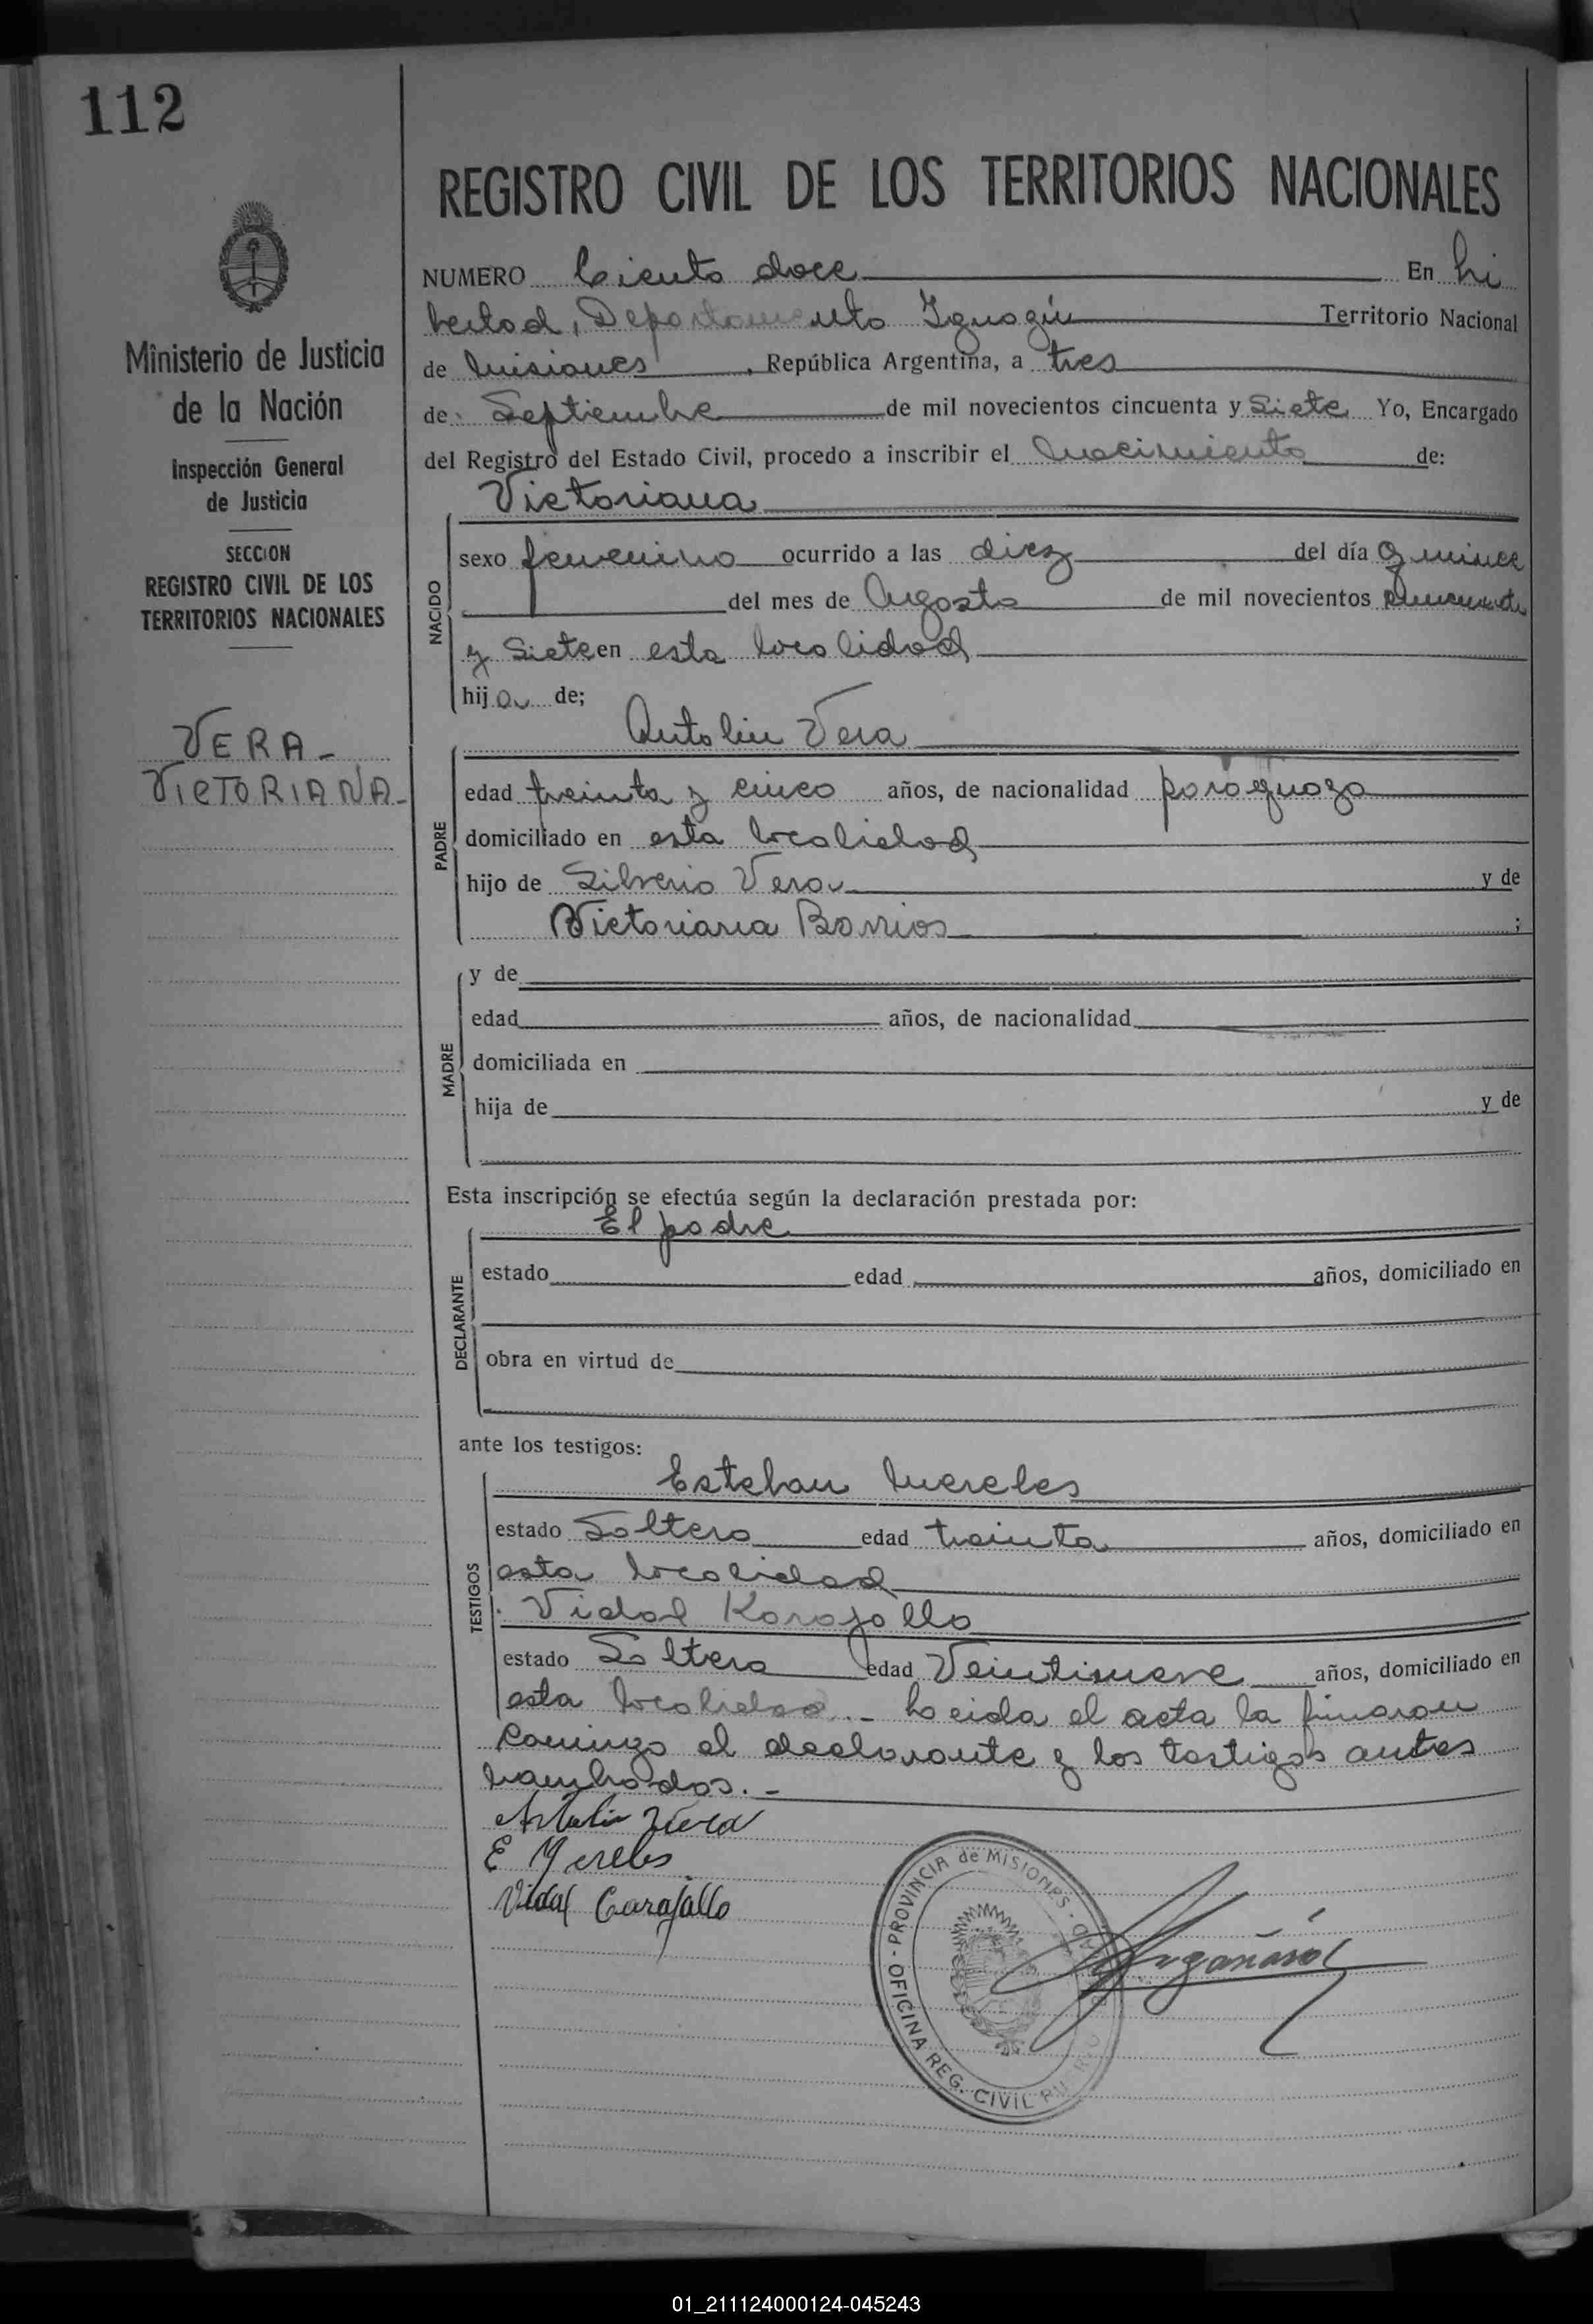 112
REGISTRO CIVIL DE LOS TERRITORIOS NACIONALES
Ministerio de Justicia
de la Nación
Inspección General
de Justicia
SECCION
REGISTRO CIVIL DE LOS
TERRITORIOS NACIONALES
VERA -
VICTORIANA -
NUMERO Ciento doce En Li
bertad, Departamento Iguazú Territorio Nacional
de Misiones, República Argentina, a tres
de Septiembre de mil novecientos cincuenta y Siete Yo, Encargado
del Registro del Estado Civil, procedo a inscribir el Nacimiento de:
Victoriana
NACIDO
sexo femenino ocurrido a las diez del día Quince
del mes de Agosto de mil novecientos cincuenta
y Siete en esta localidad
hija de;
Antolin Vera
PADRE
edad treinta y cinco años, de nacionalidad paraguaya
domiciliado en esta localidad
hijo de Silverio Vera y de
Victoriana Barrios ;
MADRE
y de
edad años, de nacionalidad
domiciliada en
hija de y de
Esta inscripción se efectúa según la declaración prestada por:
El padre
DECLARANTE
estado edad años, domiciliado en
obra en virtud de
ante los testigos:
Esteban Mereles
TESTIGOS
estado Soltero edad treinta años, domiciliado en
esta localidad
Vidal Karajallo
estado Soltero edad Veintinueve años, domiciliado en
esta localidad.- Leida el acta la firmaron
conmigo el declarante y los testigos antes
nombrados.-
Antolin Vera
E Mereles
Vidal Carajallo
PROVINCIA de MISIONES
OFICINA REG. CIVIL
01_211124000124-045243